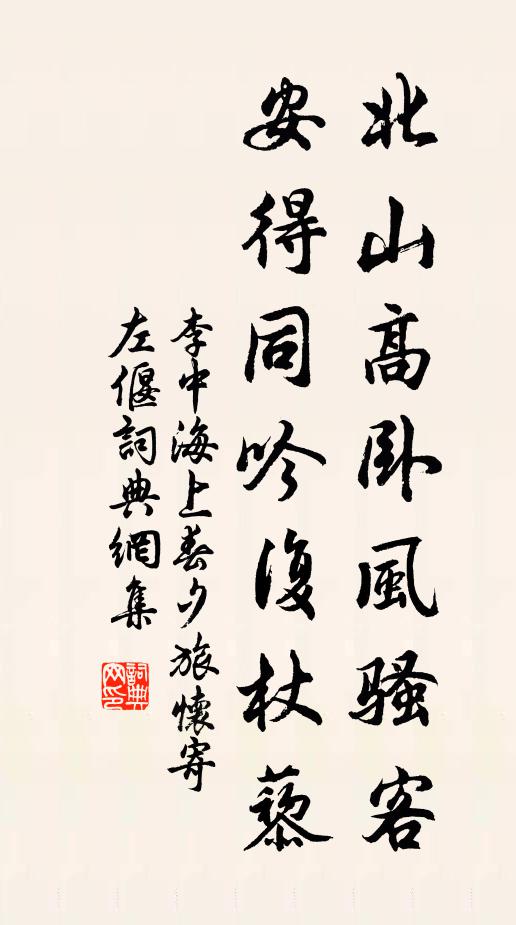 北山高卧風騷客
安得同吟復杖藜
李中海上春夕旅懷寄
左偃詞典網集
詞典網印